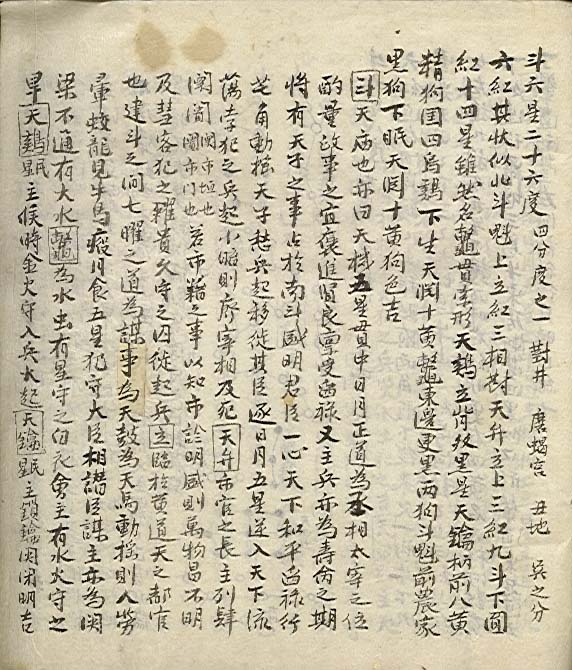 斗六星二十六度 四分度之一 對井 磨蝎宮 丑地 吳之分
六紅其状似北斗魁上立紅三相對天弁立上三紅九斗下圓
紅十四星雖然名鼈貫索形天鷄立背双黑星天鑰柄前八黃
精狗国四烏鷄下生天渊十黃鼈東邊更黑兩狗斗魁前農家
黑狗下眠天渊十黃狗色吉
斗天庙也亦曰天机五星貫中日月正道為丞相太宰之位
酌量政事之宜褒進賢良禀受爵禄又主兵亦為壽夭之期
將有天子之事占於南斗盛明君臣一心天下和平爵禄行
芒角動搖天子愁兵起移徙其臣逐日月五星逆入天下流
蕩孛犯之兵起小暗則廢宰相及死天弁市官之長主列肆
闤闠闤市垣也闠市門也若市籍之事以知市珍明盛則萬物昌不明
及彗客犯之糴貴久守之囚徒起兵立臨於黃道天之都官
也建斗之间七曜之道為謀事為天鼓為天馬動搖則人勞
暈蛟龍見牛馬瘕月食五星犯守大臣相譖臣謀主亦為関
梁不通有大水鼈為水虫有星守之白衣會主有水火守之
旱天鷄星主候時金火守入兵大起天鑰星主鎖鑰関闭明吉